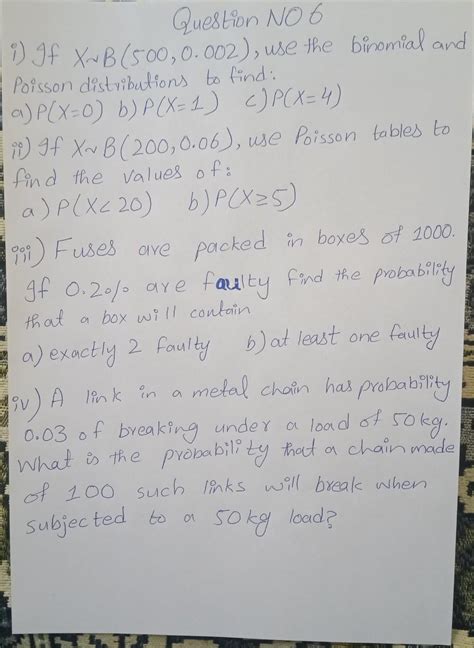 Question NO 6
i) If X~B(500, 0.002), use the binomial and
Poisson distributions to find:
a) P(X=0) b) P(X=1) c) P(X=4)
ii) If X~B(200, 0.06), use Poisson tables to
find the values of:
a) P(X<20) b) P(X≥5)
iii) Fuses are packed in boxes of 1000.
If 0.2% are faulty find the probability
that a box will contain
a) exactly 2 faulty b) at least one faulty
iv) A link in a metal chain has probability
0.03 of breaking under a load of 50kg.
What is the probability that a chain made
of 100 such links will break when
subjected to a 50kg load?